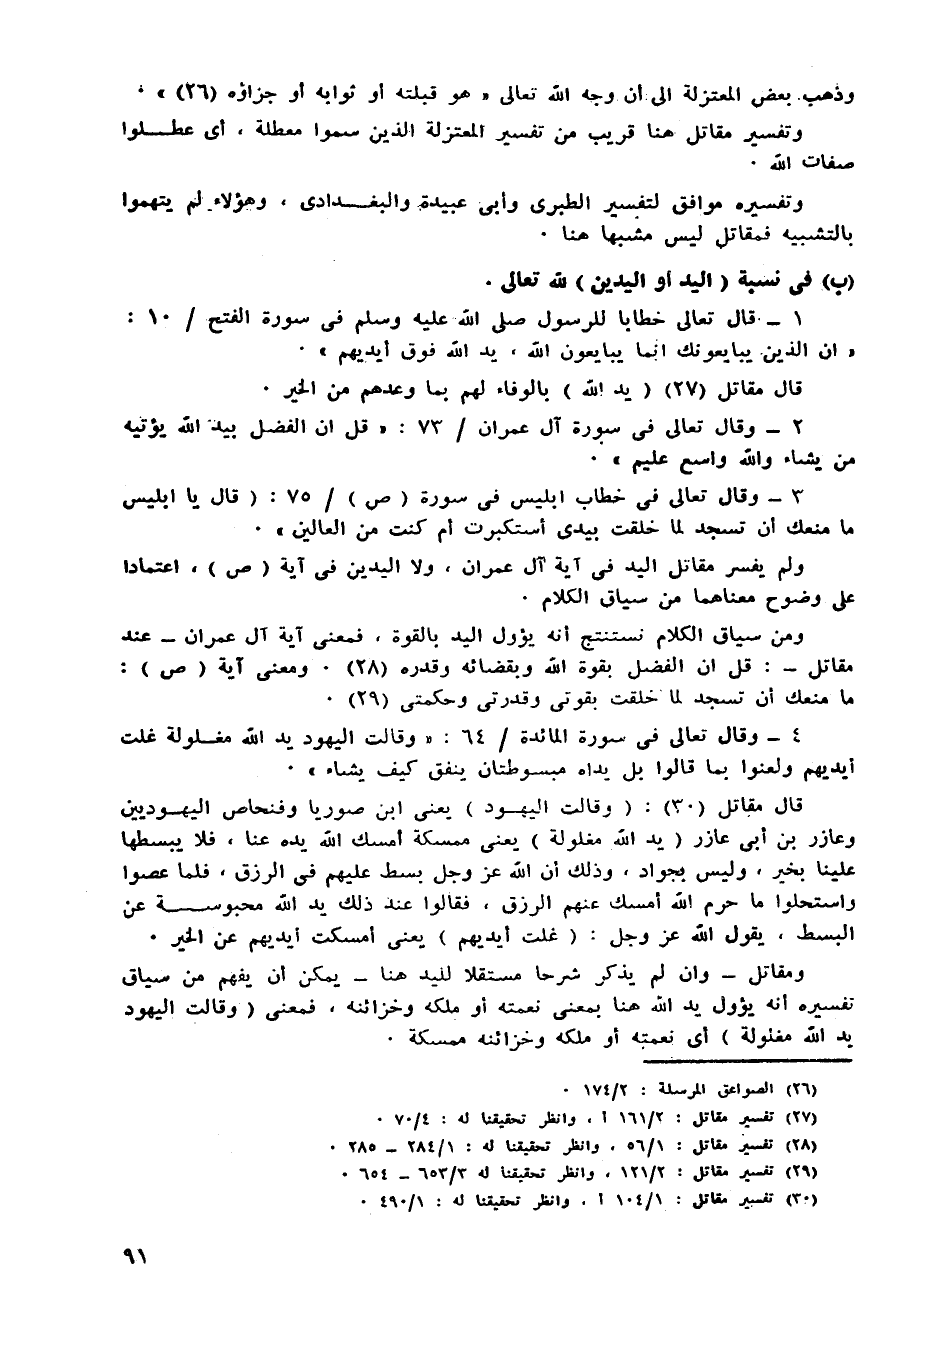 وذهب بعض المعتزلة الى أن وجه الله تعالى « هو قبلته أو ثوابه أو جزاؤه (٢٦) » ٠
وتفسير مقاتل هنا قريب من تفسير المعتزلة الذين سموا معطلة ، أى عطـــلوا
صفات الله ٠
وتفسيره موافق لتفسير الطبرى وأبى عبيدة والبغـــدادى ، وهؤلاء لم يتهموا
بالتشبيه فمقاتل ليس مشبها هنا ٠
(ب) فى نسبة ( اليد أو اليدين ) لله تعالى ٠
١ ــ قال تعالى خطابا للرسول صلى الله عليه وسلم فى سورة الفتح / ١٠ :
« ان الذين يبايعونك انما يبايعون الله ، يد الله فوق أيديهم » ٠
قال مقاتل (٢٧) ( يد الله ) بالوفاء لهم بما وعدهم من الخير ٠
٢ ــ وقال تعالى فى سورة آل عمران / ٧٣ : « قل ان الفضل بيد الله يؤتيه
من يشاء والله واسع عليم » ٠
٣ ــ وقال تعالى فى خطاب ابليس فى سورة ( ص ) / ٧٥ : ( قال يا ابليس
ما منعك أن تسجد لما خلقت بيدى أستكبرت أم كنت من العالين » ٠
ولم يفسر مقاتل اليد فى آية آل عمران ، ولا اليدين فى آية ( ص ) ، اعتمادا
على وضوح معناهما من سياق الكلام ٠
ومن سياق الكلام نستنتج أنه يؤول اليد بالقوة ، فمعنى آية آل عمران ــ عند
مقاتل ــ : قل ان الفضل بقوة الله وبقضائه وقدره (٢٨) ٠ ومعنى آية ( ص ) :
ما منعك أن تسجد لما خلقت بقوتى وقدرتى وحكمتى (٢٩) ٠
٤ ــ وقال تعالى فى سورة المائدة / ٦٤ : « وقالت اليهود يد الله مغـلولة غلت
أيديهم ولعنوا بما قالوا بل يداه مبسوطتان ينفق كيف يشاء » ٠
قال مقاتل (٣٠) : ( وقالت اليهـود ) يعنى ابن صوريا وفنحاص اليهـوديين
وعازر بن أبى عازر ( يد الله مغلولة ) يعنى ممسكة أمسك الله يده عنا ، فلا يبسطها
علينا بخير ، وليس بجواد ، وذلك أن الله عز وجل بسط عليهم فى الرزق ، فلما عصوا
واستحلوا ما حرم الله أمسك عنهم الرزق ، فقالوا عند ذلك يد الله محبوســـة عن
البسط ، يقول الله عز وجل : ( غلت أيديهم ) يعنى أمسكت أيديهم عن الخير ٠
ومقاتل ــ وان لم يذكر شرحا مستقلا لليد هنا ــ يمكن أن يفهم من سياق
تفسيره أنه يؤول يد الله هنا بمعنى نعمته أو ملكه وخزائنه ، فمعنى ( وقالت اليهود
يد الله مغلولة ) أى نعمته أو ملكه وخزائنه ممسكة ٠
(٢٦) الصواعق المرسلة : ١٧٤/٢ ٠
(٢٧) تفسير مقاتل : ١٦١/٢ أ ، وانظر تحقيقنا له : ٧٠/٤ ٠
(٢٨) تفسير مقاتل : ٥٦/١ ، وانظر تحقيقنا له : ٢٨٤/١ ــ ٢٨٥ ٠
(٢٩) تفسير مقاتل : ١٢١/٢ ، وانظر تحقيقنا له ٦٥٣/٣ ــ ٦٥٤ ٠
(٣٠) تفسير مقاتل : ١٠٤/١ أ ، وانظر تحقيقنا له : ٤٩٠/١ ٠
٩١